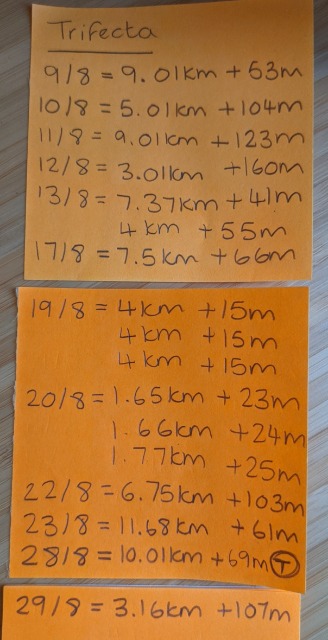 Trifecta
9/8 = 9.01km + 53m
10/8 = 5.01km +104m
11/8 = 9.01km +123m
12/8 = 3.01km +160m
13/8 = 7.37km + 41m
4km +55m
17/8 = 7.5km +66m
19/8 = 4km +15m
4km +15m
4km +15m
20/8 = 1.65km + 23m
1.66km +24m
1.77km +25m
22/8 = 6.75km +103m
23/8 = 11.68km +61m
28/8 = 10.01km +69m T
29/8 = 3.16km +107m